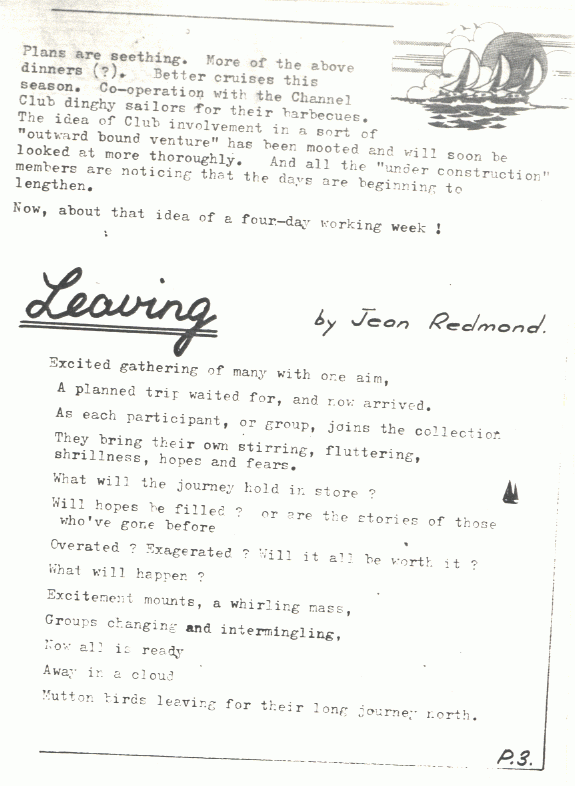 Plans are seething. More of the above
dinners (?). Better cruises this
season. Co-operation with the Channel
Club dinghy sailors for their barbecues.
The idea of Club involvement in a sort of
"outward bound venture" has been mooted and will soon be
looked at more thoroughly. And all the "under construction"
members are noticing that the days are beginning to
lengthen.
Now, about that idea of a four-day working week !
Leaving
by Jean Redmond.
Excited gathering of many with one aim,
A planned trip waited for, and now arrived.
As each participant, or group, joins the collection
They bring their own stirring, fluttering,
shrillness, hopes and fears.
What will the journey hold in store ?
Will hopes be filled ? or are the stories of those
who've gone before
Overated ? Exagerated ? Will it all be worth it ?
What will happen ?
Excitement mounts, a whirling mass,
Groups changing and intermingling,
Now all is ready
Away in a cloud
Mutton birds leaving for their long journey north.
P.3.